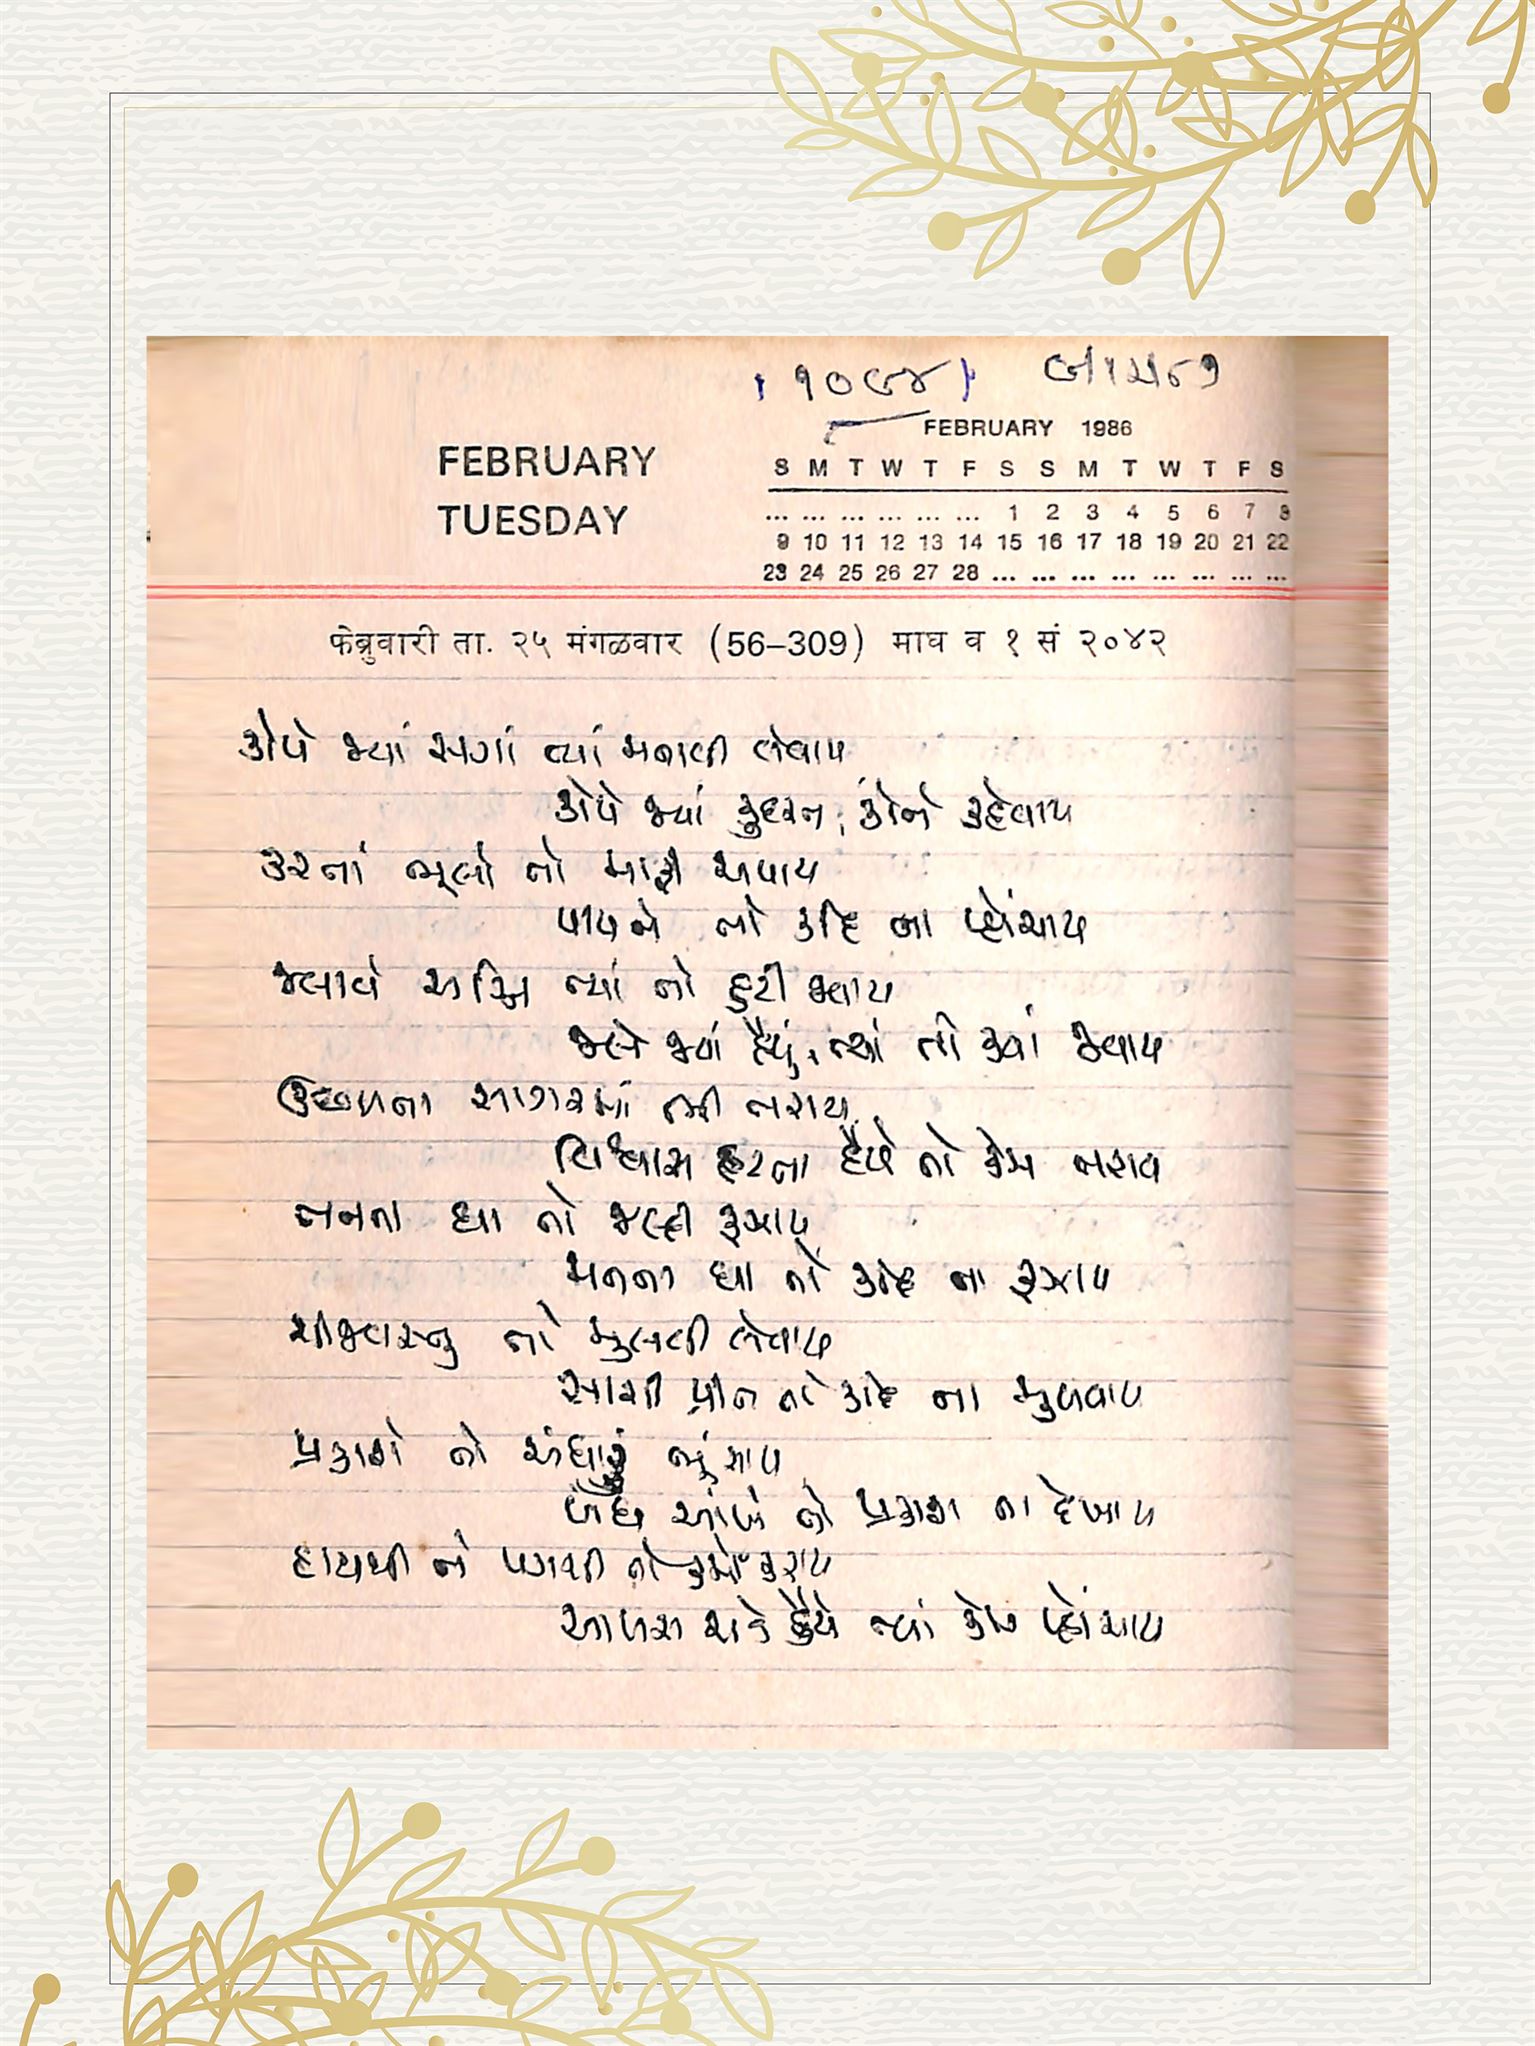 ૧૦૯૪
FEBRUARY
TUESDAY
FEBRUARY 1986
S M T W T F S S M T W T F S
... ... ... ... ... ... 1 2 3 4 5 6 7 8
9 10 11 12 13 14 15 16 17 18 19 20 21 22
23 24 25 26 27 28 ... ... ... ... ... ... ... ...
फेब्रुवारी ता. २५ मंगळवार (56–309) माघ व १ सं २०४२
કોપે જ્યાં સગાં ત્યાં મનાવી લેવાય
કોપે જ્યાં કુદરત, કોને કહેવાય
કરતાં ભૂલો તો માફી અપાય
પાપને તો કદિ ના પ્હોંચાય
જલાવે અગ્નિ ત્યાં તો હટી જવાય
જલે જ્યાં હૈયું, ત્યાં તો ક્યાં જવાય
ઉછળતા સાગરમાં ભી તરાય
વિશ્વાસ હટતા હૈયે તો કેમ તરાય
તનના ઘા તો જલ્દી રૂઝાય
મનના ઘા તો કદિ ના રૂઝાય
ચીજવસ્તુ તો મુલવી લેવાય
સાચી પ્રીત તો કદિ ના મુલવાય
પ્રકાશે તો અંધારું ભૂંસાય
બંધ આંખે તો પ્રકાશ ના દેખાય
હાથથી ને પગથી તો કર્મો કરાય
આળસ ચડે હૈયે ત્યાં કેમ પ્હોંચાય